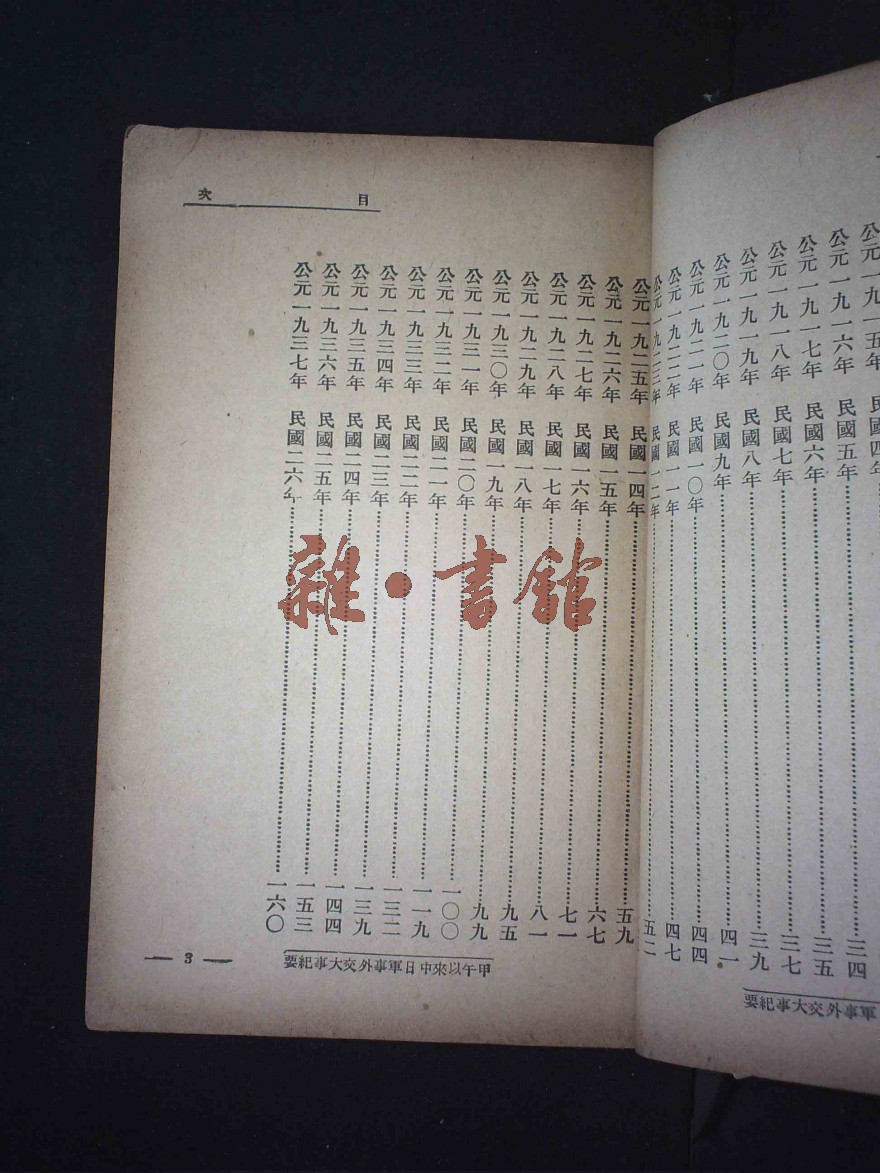 公元一九一五年 民國四年
公元一九一六年 民國五年……三四
公元一九一七年 民國六年……三五
公元一九一八年 民國七年……三七
公元一九一九年 民國八年……三九
公元一九二〇年 民國九年……四一
公元一九二一年 民國一〇年……四四
公元一九二二年 民國一一年……四七
公元一九二三年 民國一二年……五二
軍事外交大事紀要
目次
公元一九二五年 民國一四年……五九
公元一九二六年 民國一五年……六七
公元一九二七年 民國一六年……七一
公元一九二八年 民國一七年……八一
公元一九二九年 民國一八年……九五
公元一九三〇年 民國一九年……九九
公元一九三一年 民國二〇年……一〇〇
公元一九三二年 民國二一年……一一九
公元一九三三年 民國二二年……一三二
公元一九三四年 民國二三年……一三九
公元一九三五年 民國二四年……一四四
公元一九三六年 民國二五年……一五三
公元一九三七年 民國二六年……一六〇
甲午以來中日軍事外交大事紀要
— 3 —
雜·書館